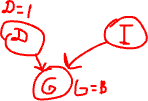 D=1
D
I
G
G=B